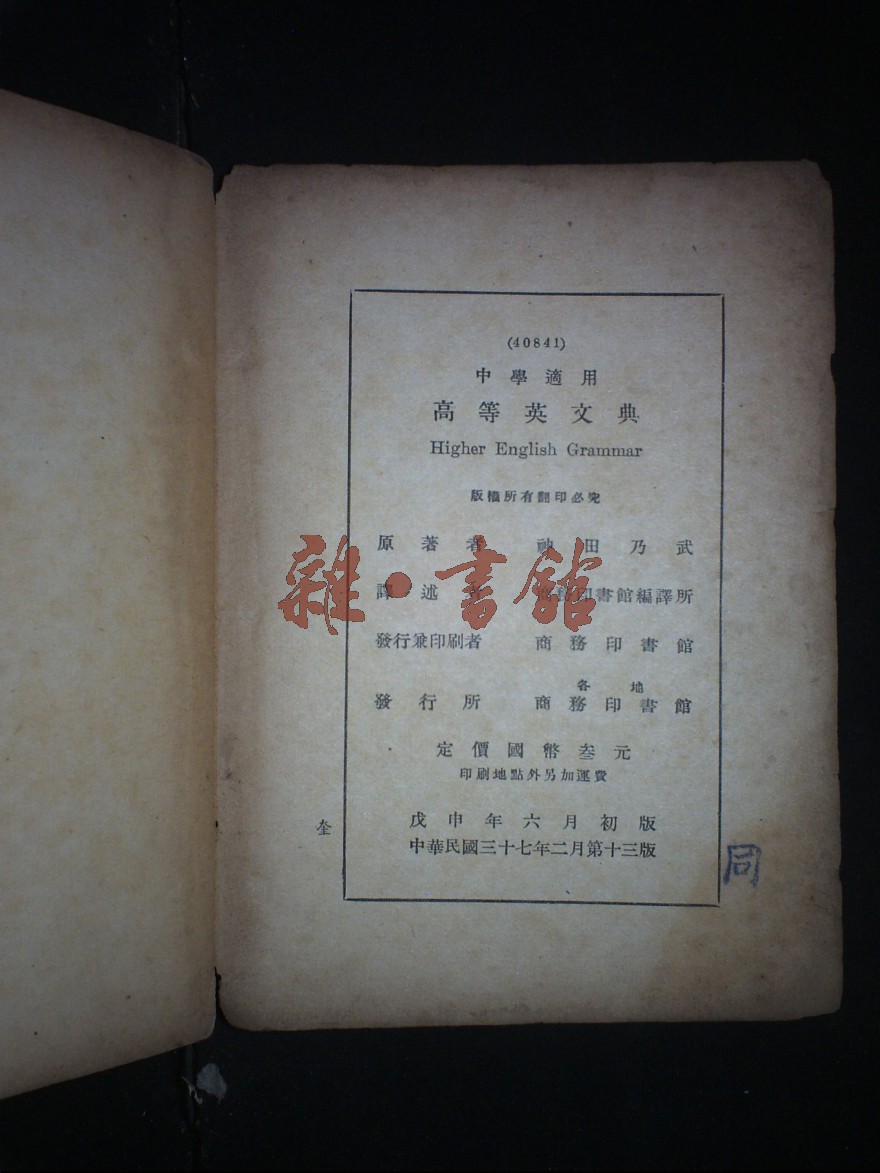 (40841)
中學適用
高等英文典
Higher English Grammar
版權所有翻印必究
原著者 神田乃武
譯述者 商務印書館編譯所
發行兼印刷者 商務印書館
各地
發行所 商務印書館
定價國幣叁元
印刷地點外另加運費
戊申年六月初版
中華民國三十七年二月第十三版
同
雜·書館